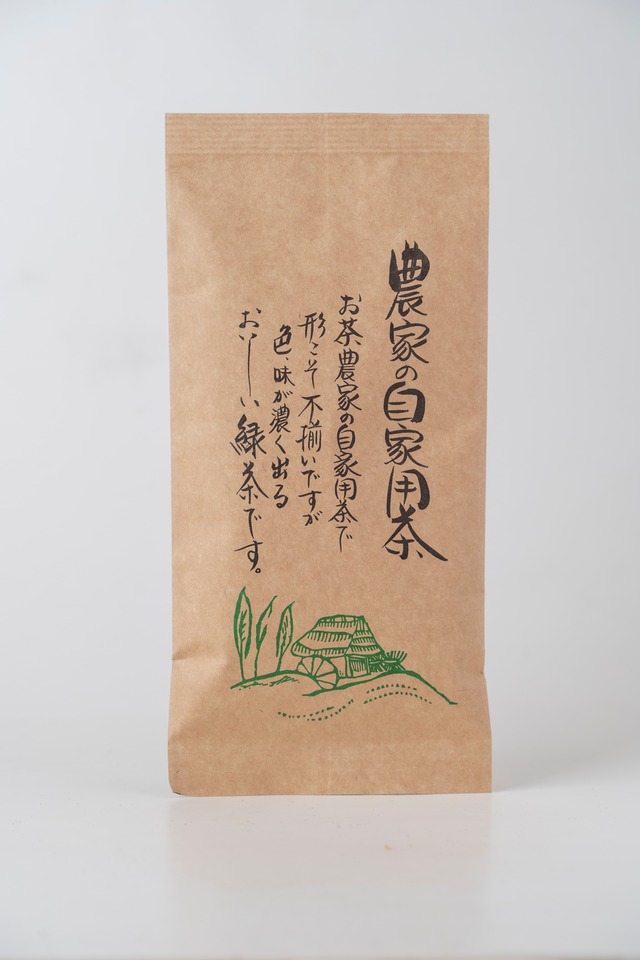 農家の自家用茶
お茶農家の自家用茶で
形こそ不揃いですが
色、味が濃く出る
おいしい緑茶です。